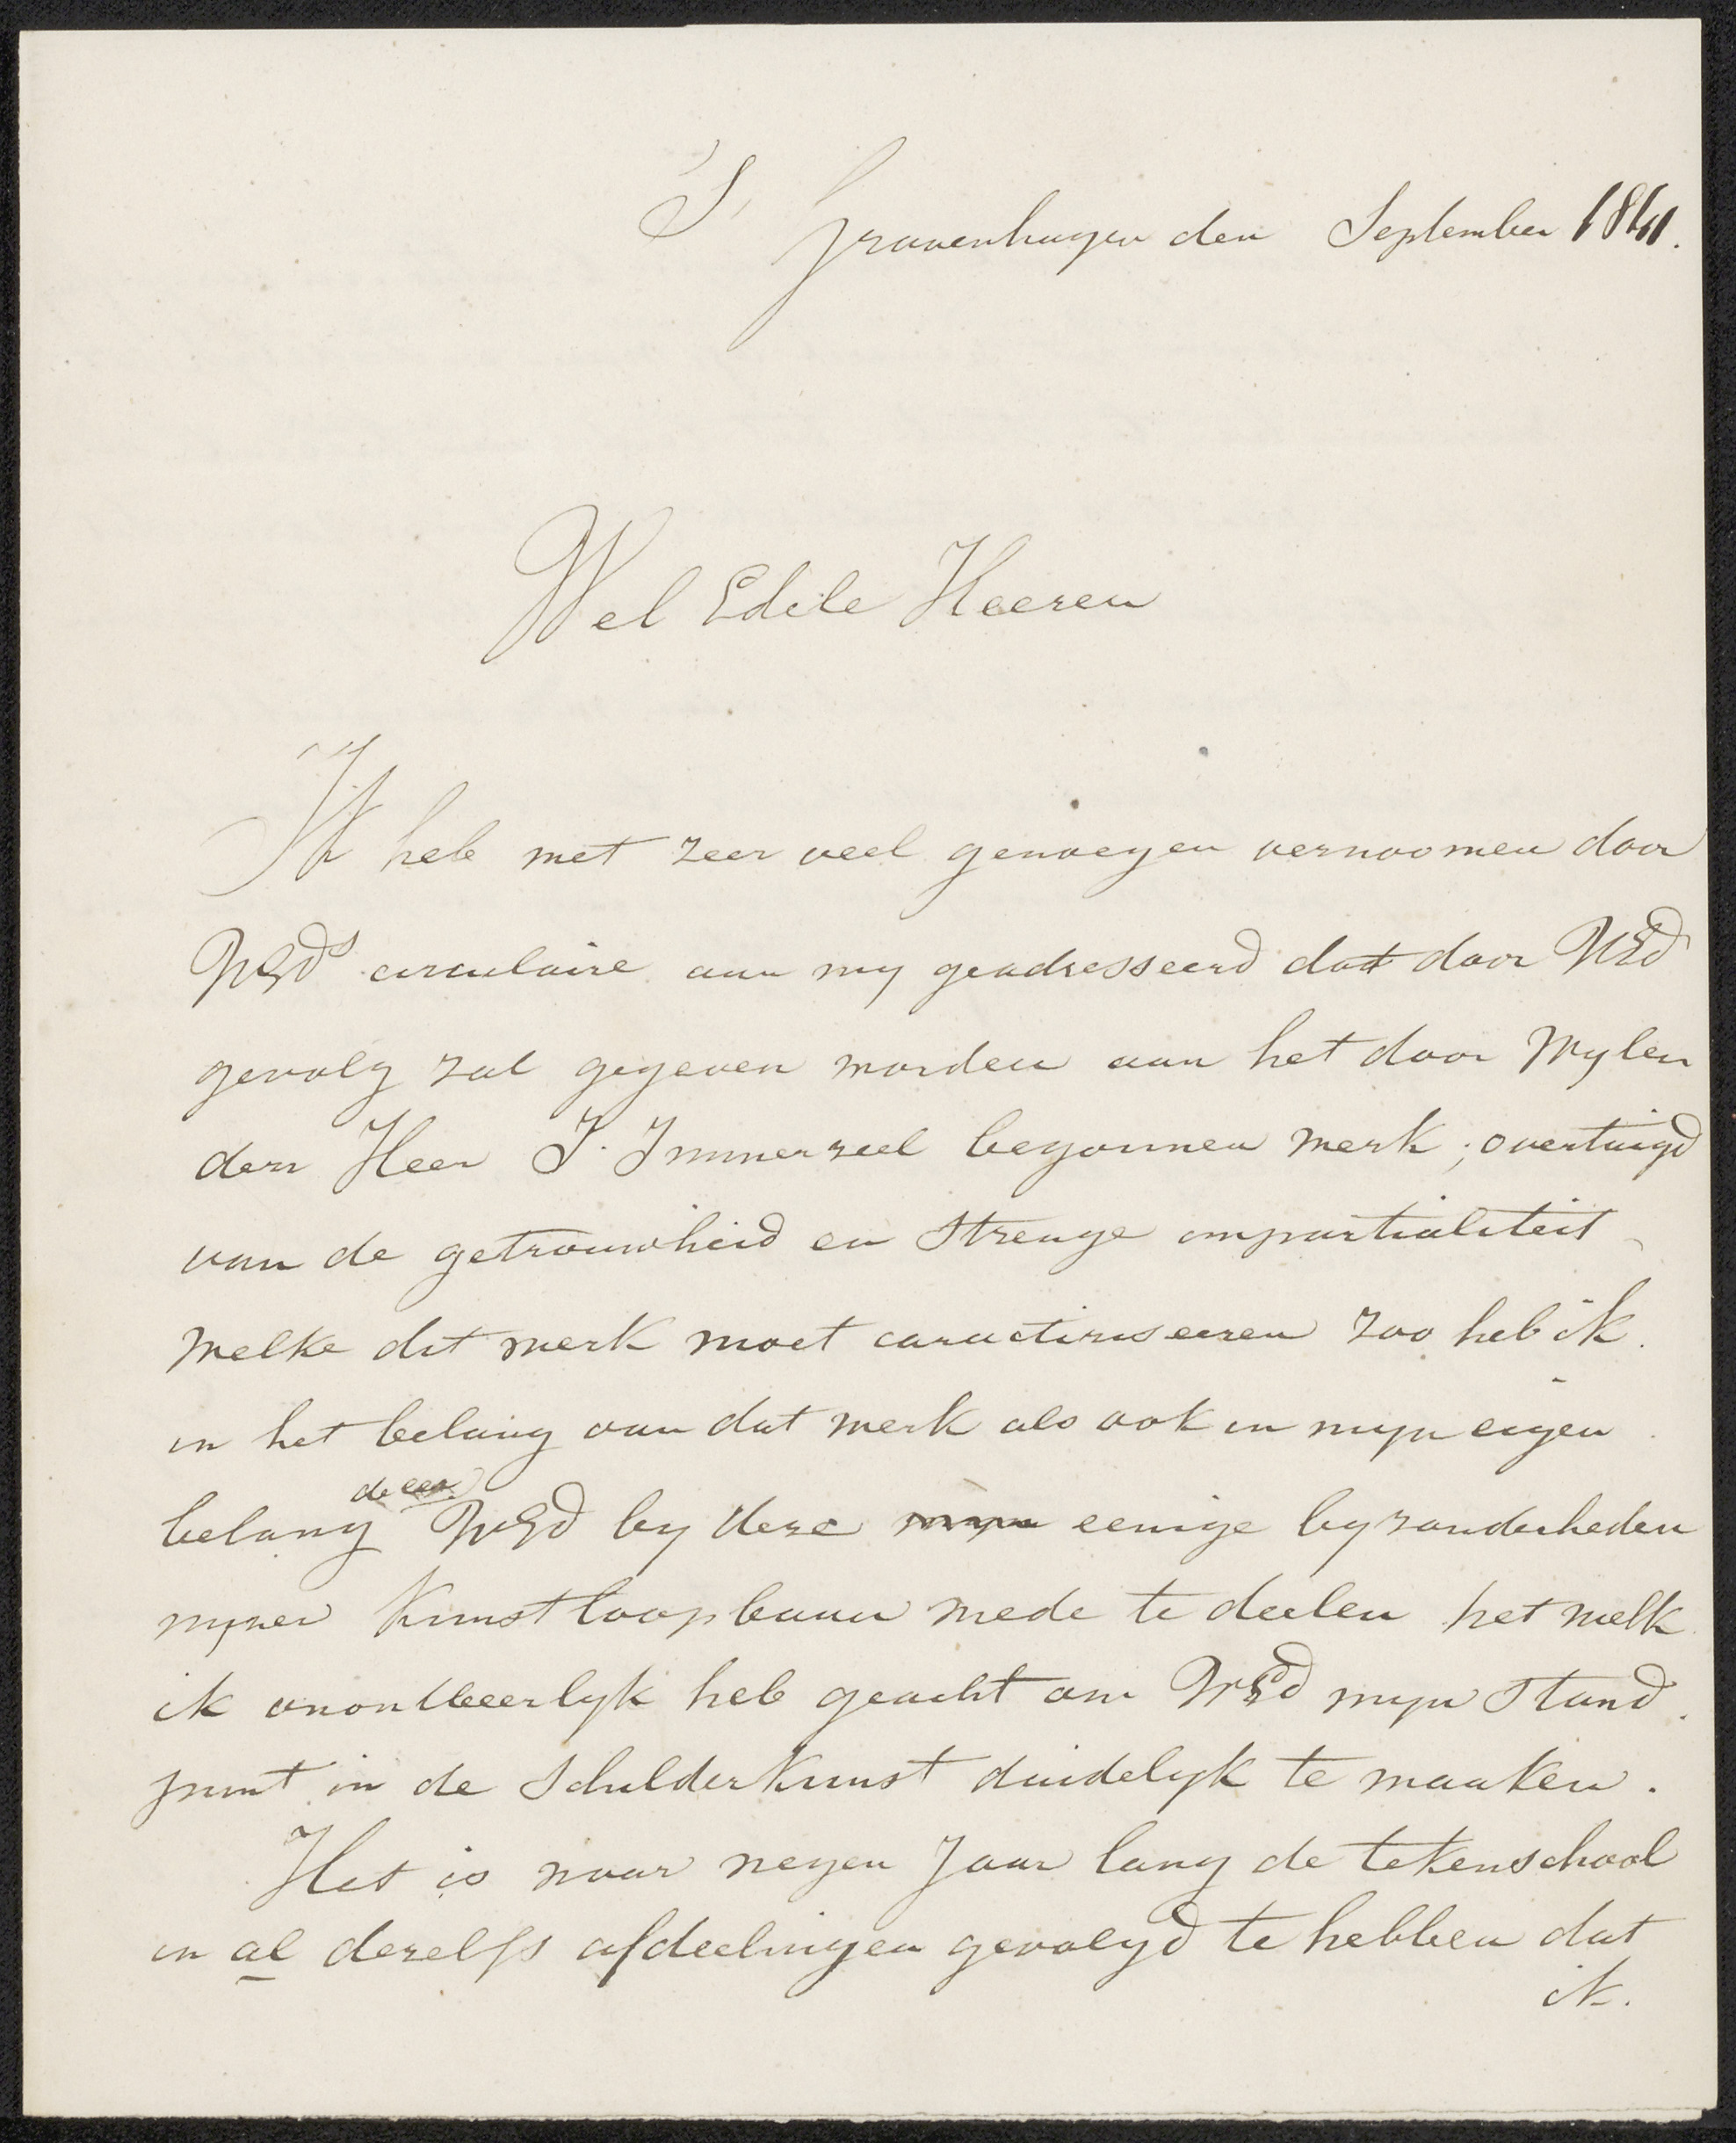 S, Gravenhagen den September 1841.
Wel Edele Heeren
Ik heb met zeer veel genoegen vernoomen door
WEds circulaire aan my geadresseerd dat door WEd
gevolg zal gegeven worden aan het door Wylen
den Heer J. Immerzeel begonnen werk; overtuigd
van de getrouwheid en strenge impartialiteit
welke dit werk moet caracteriseeren zoo heb ik
in het belang van dat werk als ook in myn eigen
de eer
belang WEd by deze myn eenige byzonderheden
myner Kunstloopbaan mede te deelen het welk
ik onontbeerlyk heb geacht om WEd myn stand
punt in de schilderkunst duidelyk te maaken.
Het is naar negen Jaar lang de tekenschool
in al derzelfs afdeelingen gevolgd te hebben dat
ik.